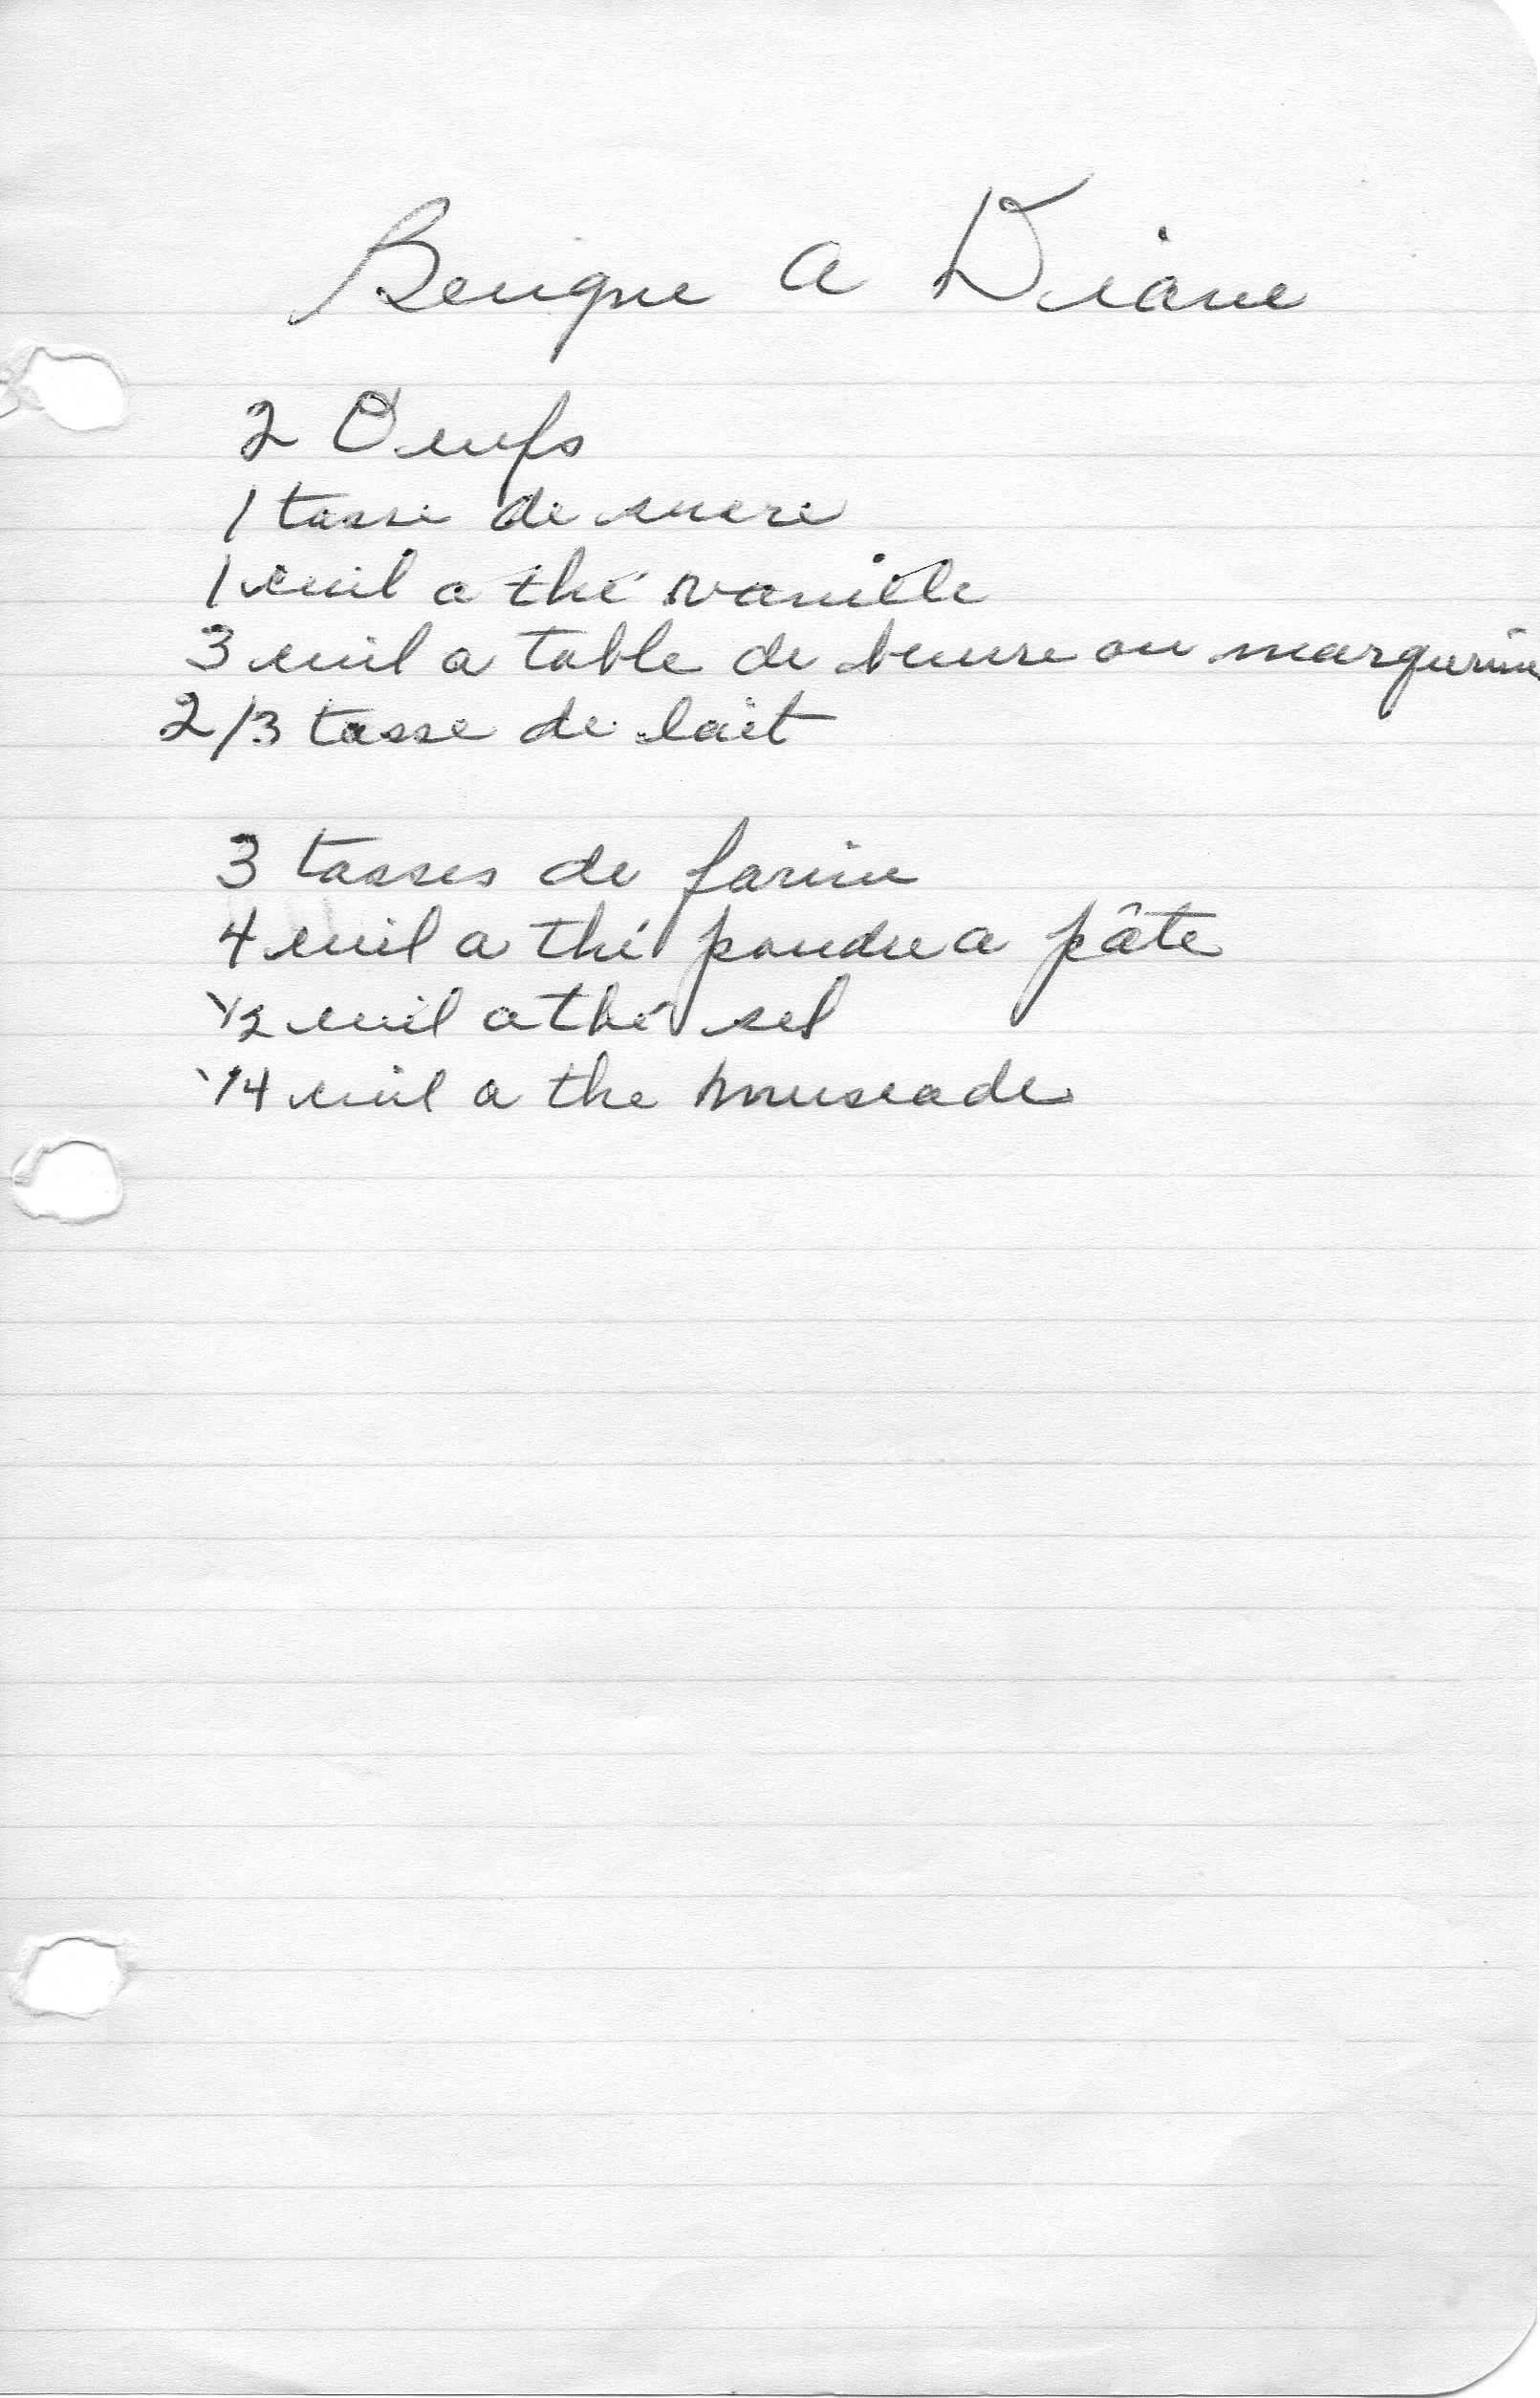 Beigne a Diane
2 Oeufs
1 tasse de sucre
1 cuil a thé vanille
3 cuil a table de beurre ou margurine
2/3 tasse de lait
3 tasses de farine
4 cuil a thé poudre a pâte
1/2 cuil a thé sel
1/4 cuil a the muscade